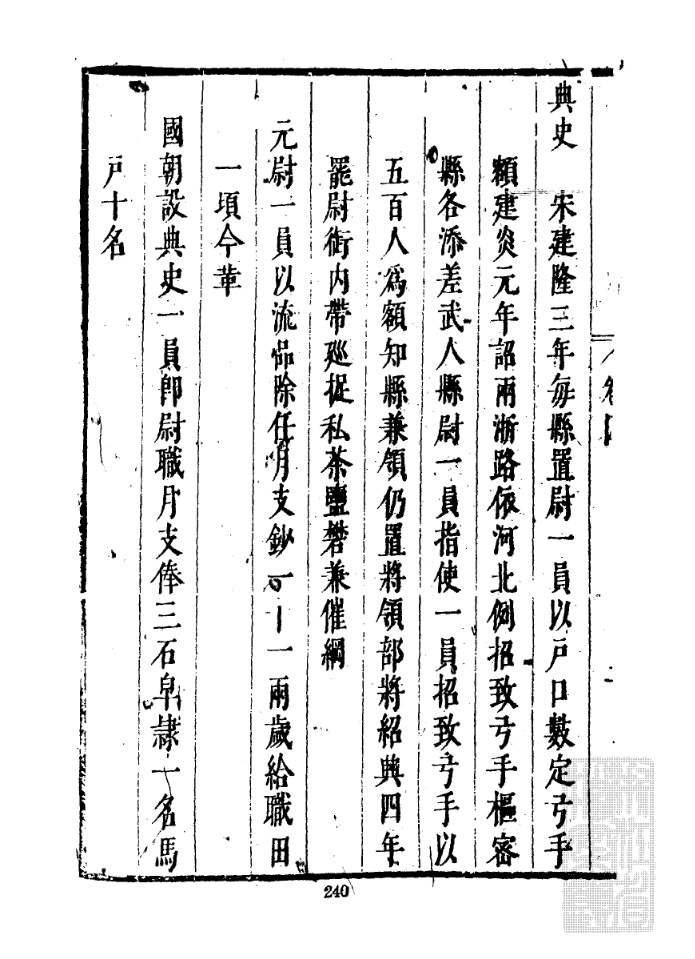 典史　宋建隆三年每縣置尉一員以戸口數定弓手
額建炎元年詔兩浙路依河北例招致弓手樞密
縣各添差武人縣尉一員指使一員招致弓手以
五百人爲額知縣兼領仍置將領部將紹興四年
罷尉銜内帶廵捉私茶鹽礬兼催綱
元尉一員以流品除任月支鈔一十一兩歲給職田
一頃今革
國朝設典史一員卽尉職月支俸三石皁隷一名馬
戸十名
240